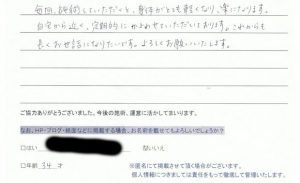 毎回、施術していただくと、身体がとても軽くなり、楽になります。
自宅から近く、定期的にかよわせていただいております。これからも
長くお世話になりたいです。よろしくお願いいたします。
ご協力ありがとうございました。今後の施術、運営に活かしてまいります。
なお、HP・ブログ・紙面などに掲載する場合、お名前を載せてもよろしいでしょうか?
□はい
□いいえ
□年齢 34 才
※匿名にて掲載させて頂く場合がございます。
個人情報につきましては責任をもって徹底して管理いたします。